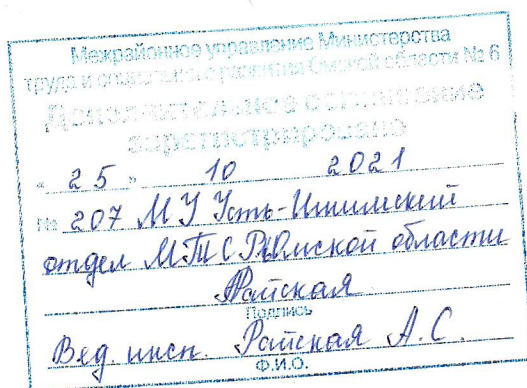 Межрайонное управление Министерства
труда и социального развития Омской области № 6
Дополнительное соглашение
зарегистрировано
« 25 » 10 2021
№ 207 МУ Усть-Ишимский
отдел МТСР Омской области
Райская
Подпись
Вед. инсп. Райская А.С.
Ф.И.О.